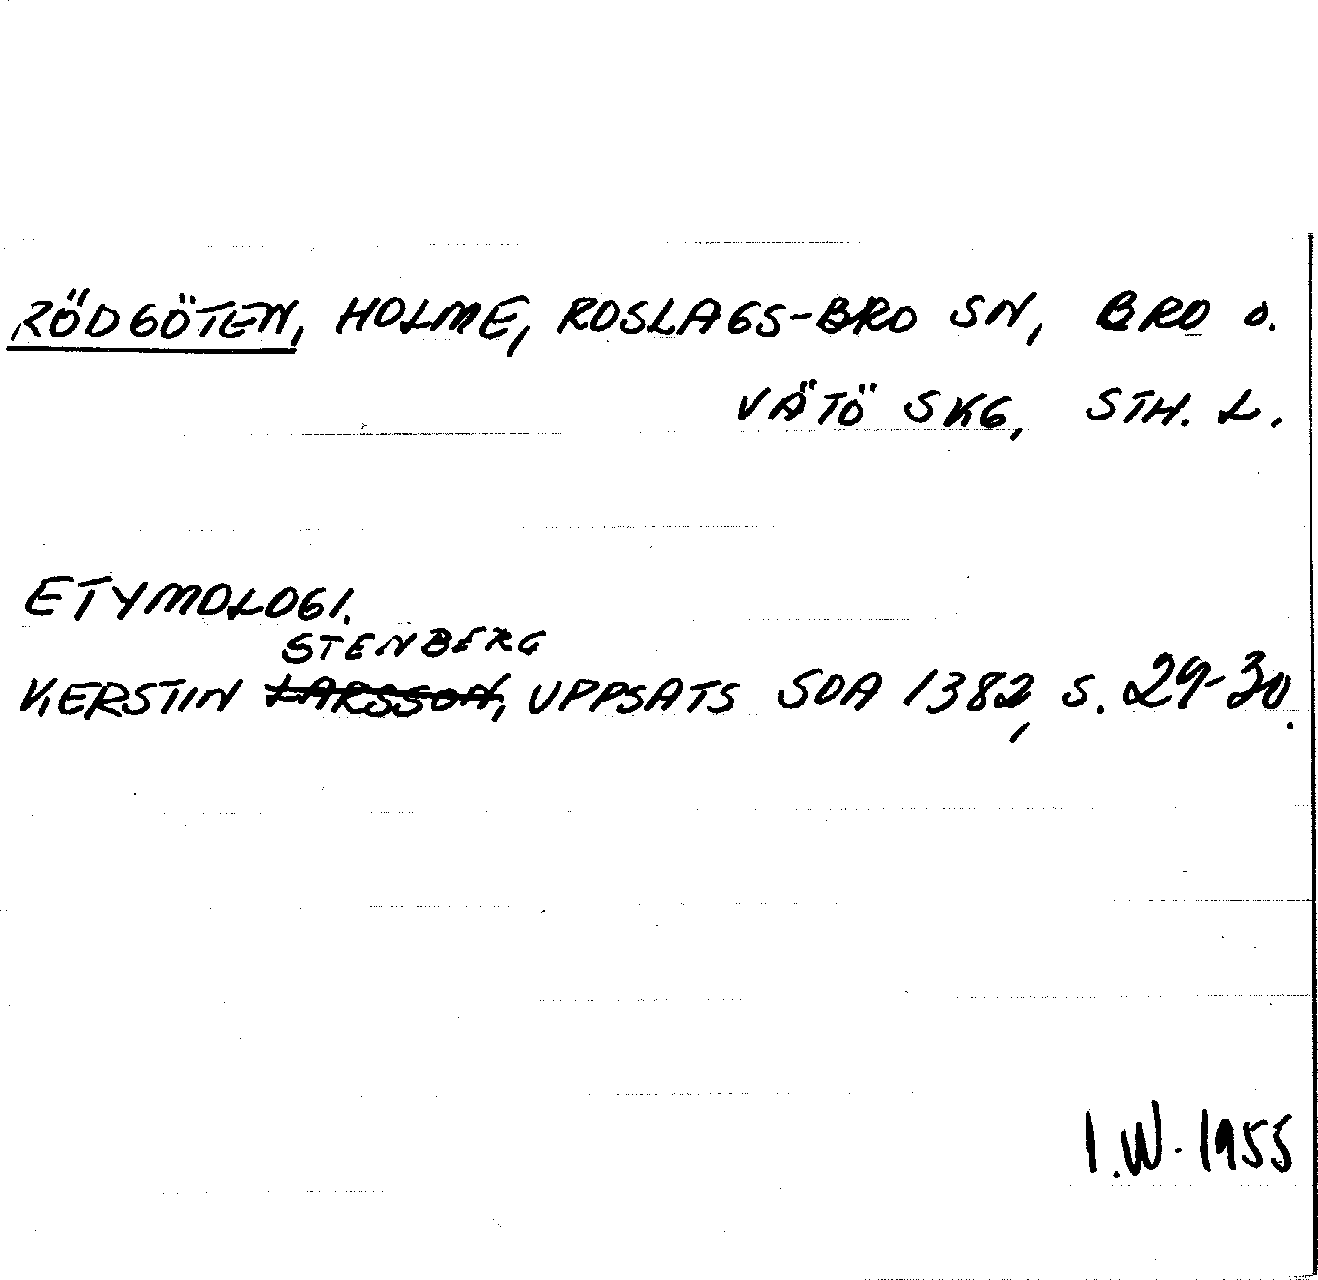 RÖDGÖTEN, HOLME, ROSLAGS-BRO SN, BRO O.
VÄTÖ SKG, STH. L.
ETYMOLOGI.
STENBERG
KERSTIN LARSSON, UPPSATS SOA 1382, S. 29-30.
I.W. 1955